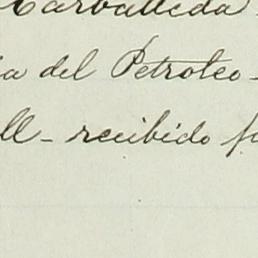 Carballeda
ia del Petroleo -
ll - recibido f